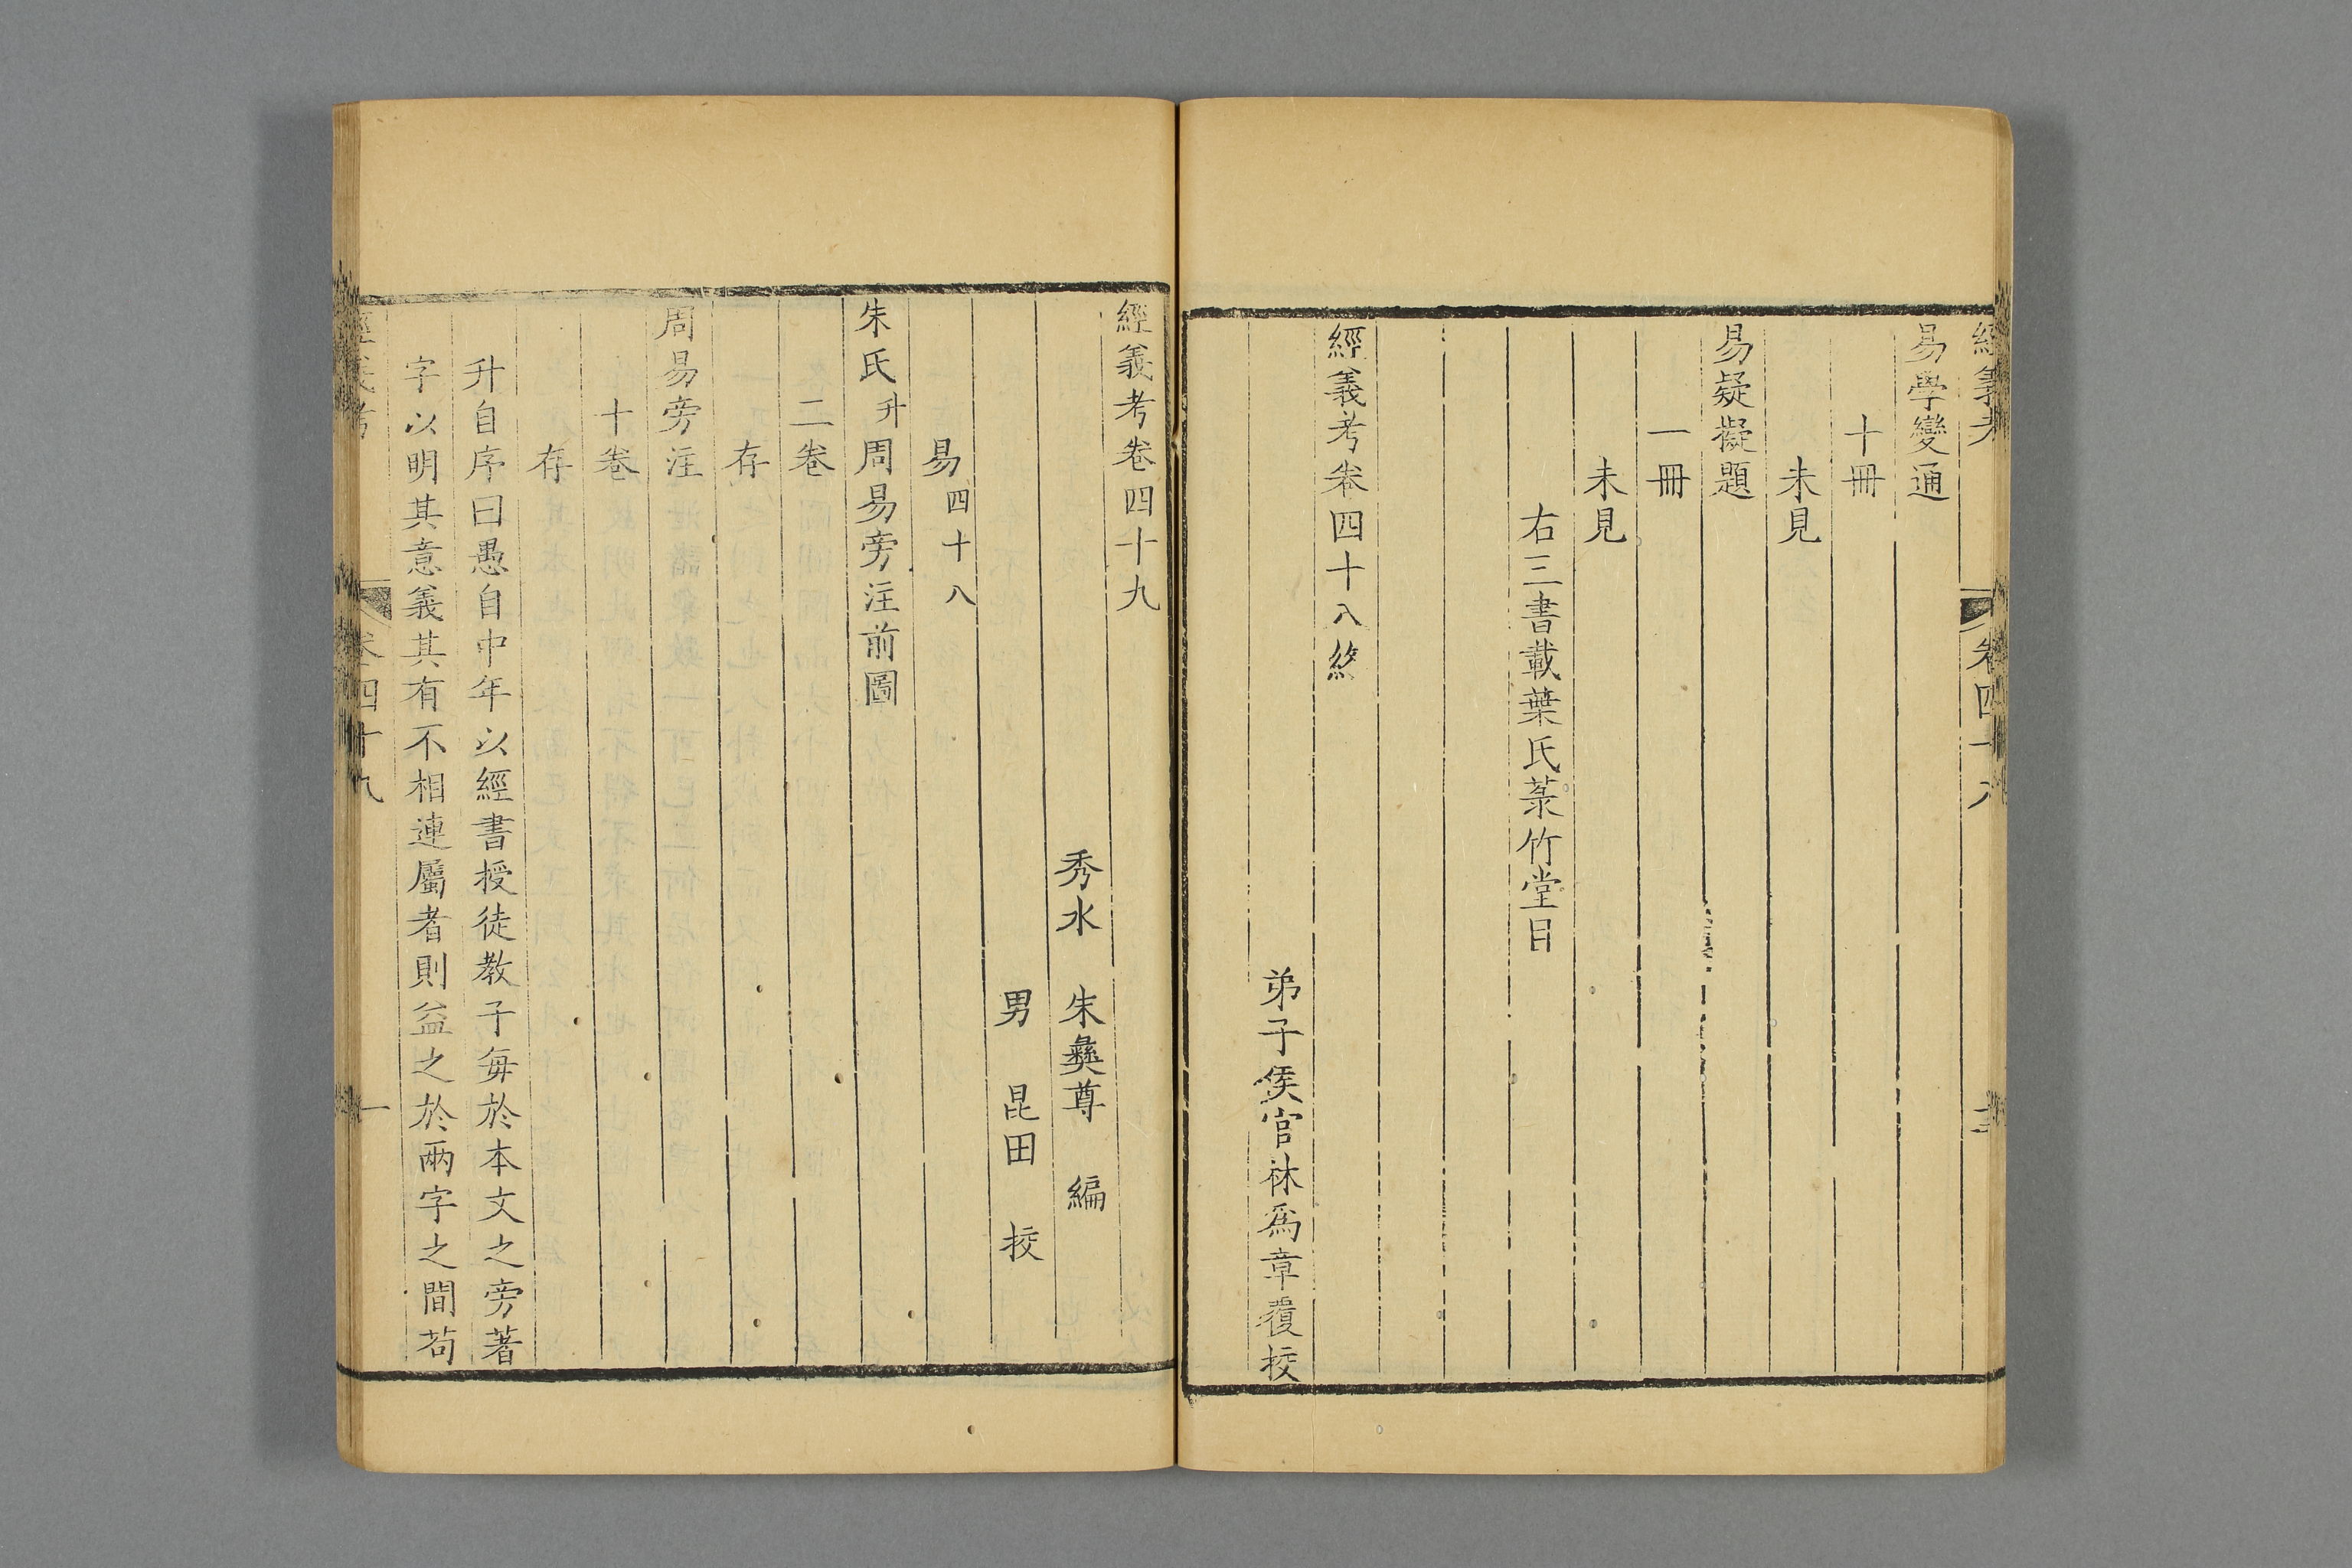 易學變通
十冊
未見
易疑擬題
一冊
未見
右三書載葉氏菉竹堂目
經義考卷四十八終
弟子侯官林爲章覆挍
經義考卷四十九
秀水 朱彝尊 編
男 昆田 挍
易四十八
朱氏升周易旁注前圖
二卷
存
周易旁注
十卷
存
升自序曰愚自中年以經書授徒教子每於本文之旁著
字以明其意義其有不相連屬者則益之於兩字之間苟